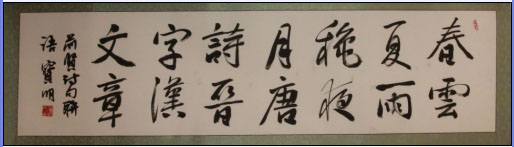 春雲
夏雨
秋夜
月唐
詩晉
字漢
文章
前賢詩句聯
語 寶明